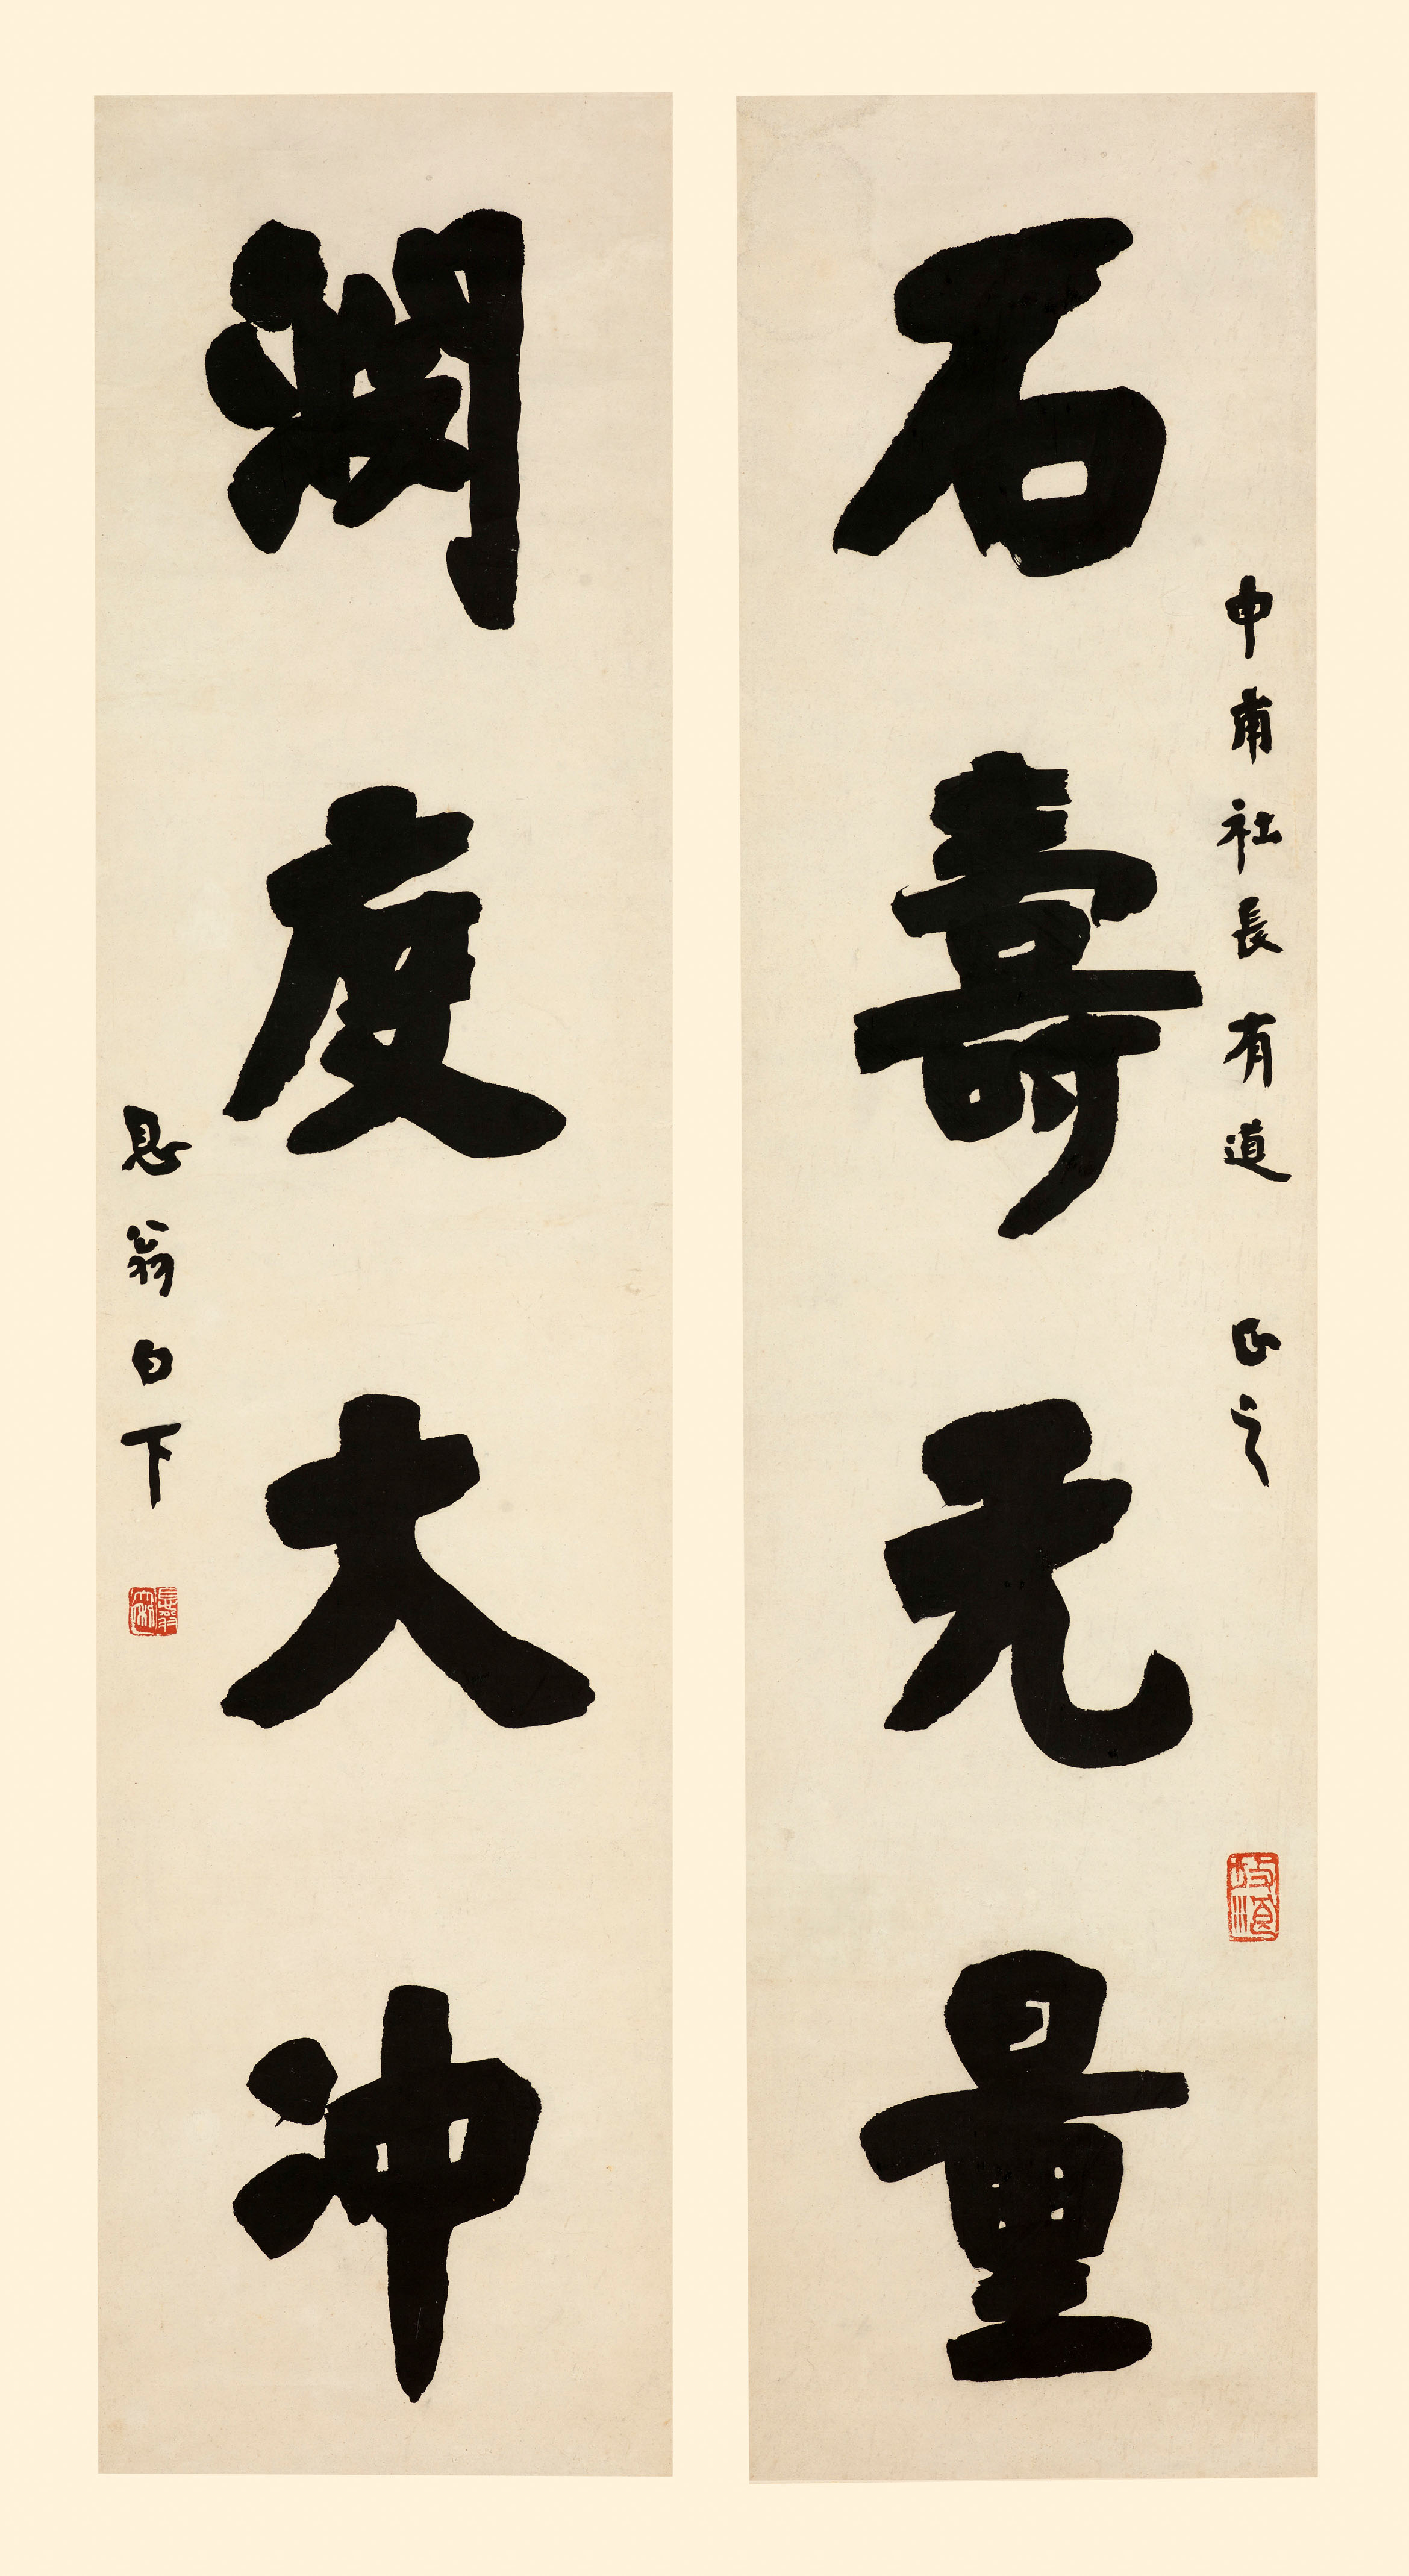 石壽无量
中甫社長有道 正之
度大冲
翁白下